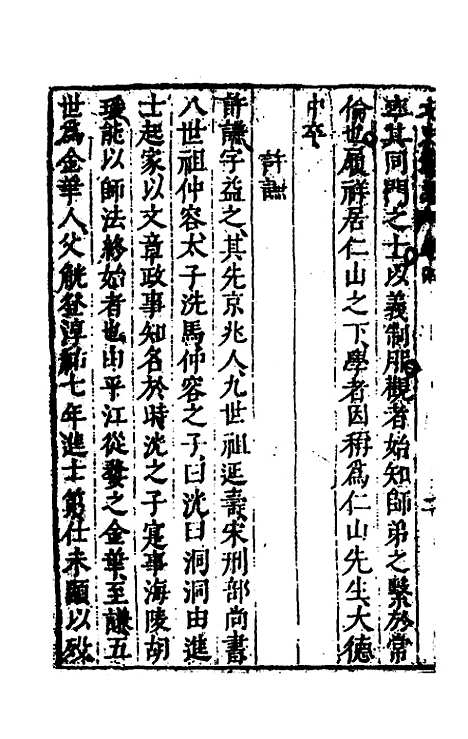 率其同門之士以義制服觀者始知師弟之繫於常
倫也履祥居仁山之下學者因稱為仁山先生大德
中卒
許謙
許謙字益之其先京兆人九世祖延壽宋刑部尚書
八世祖仲容太子洗馬仲容之子曰洸曰洞洞由進
士起家以文章政事知名於時洸之子寔事海陵胡
瑗能以師法終始者也由平江徙婺之金華至謙五
世為金華人父觥登淳祐七年進士第仕未顯以歿